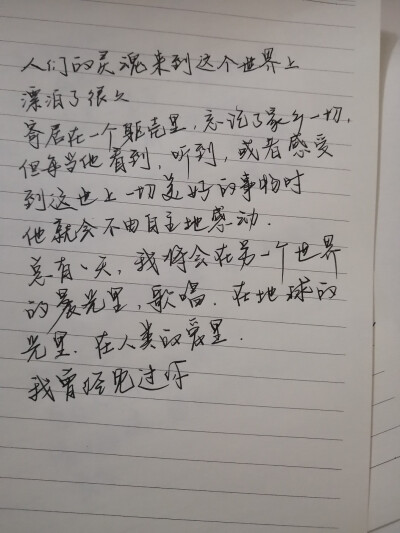 人们的灵魂来到这个世界上
漂泊了很久
寄居在一个躯壳里,忘记了家乡一切,
但每当他看到,听到,或者感受
到这世上一切美好的事物时
他就会不由自主地感动.
总有一天,我将会在另一个世界
的晨光里,歌唱.在地球的
光里.在人类的爱里.
我曾经见过你